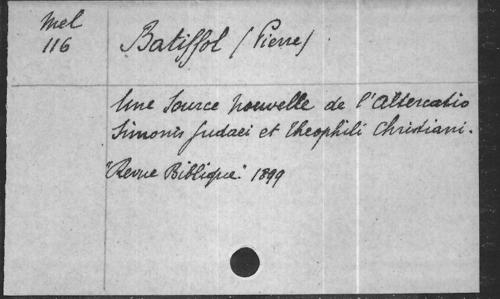 Mel
116
Batiffol (Pierre)
Une Source nouvelle de l'Altercatio
Simonis Judaei et Theophili Christiani.
"Revue Biblique" 1899